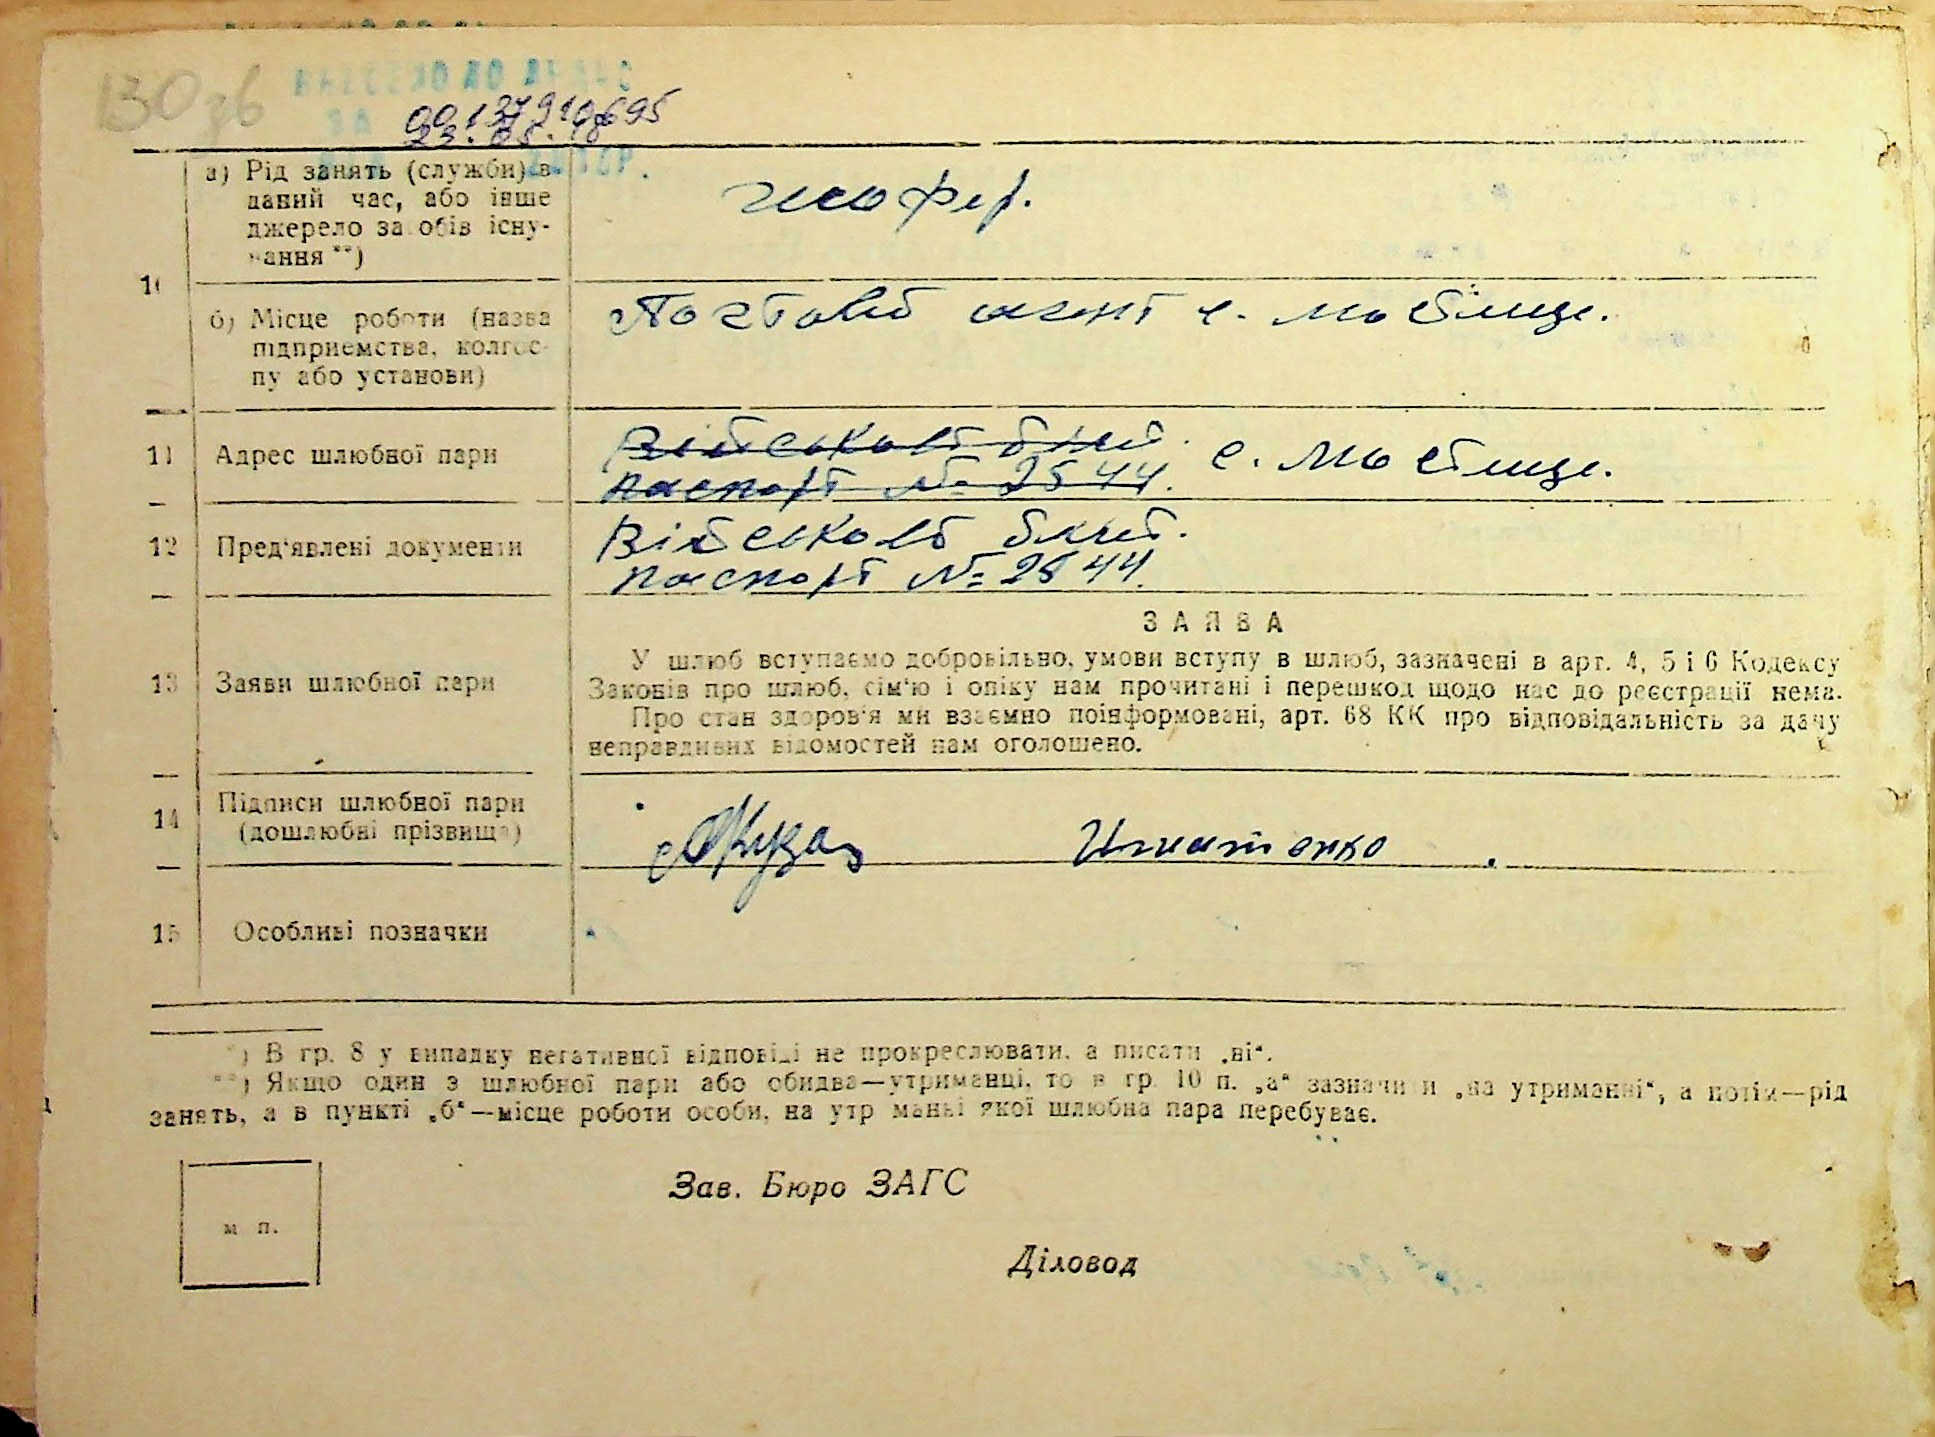 130 зв
ВНЕСЕНО ДО ДРАЦС
ЗА
00137910695
23.05.18
10
а) Рід занять (служби) в
даний час, або інше
джерело засобів існу-
вання **)
шофер.
б) Місце роботи (назва
підприємства, колгос-
пу або установи)
Поштовий агент с. Мостище.
11
Адрес шлюбної пари
Військовий білет.
паспорт № 2544.
с. Мостище.
12
Пред'явлені документи
Військовий білет.
паспорт № 2544.
13
Заяви шлюбної пари
ЗАЯВА
У шлюб вступаємо добровільно, умови вступу в шлюб, зазначені в арт. 4, 5 і 6 Кодексу
Законів про шлюб, сім'ю і опіку нам прочитані і перешкод щодо нас до реєстрації нема.
Про стан здоров'я ми взаємно поінформовані, арт. 68 КК про відповідальність за дачу
неправдивих відомостей нам оголошено.
14
Підписи шлюбної пари
(дошлюбні прізвища)
Игнатенко
15
Особливі позначки
*) В гр. 8 у випадку негативної відповіді не прокреслювати, а писати „ні“.
**) Якщо один з шлюбної пари або обидва—утриманці, то в гр. 10 п. „а“ зазначити „на утриманні“, а потім—рід
занять, а в пункті „б“—місце роботи особи, на утриманні якої шлюбна пара перебуває.
м п.
Зав. Бюро ЗАГС
Діловод